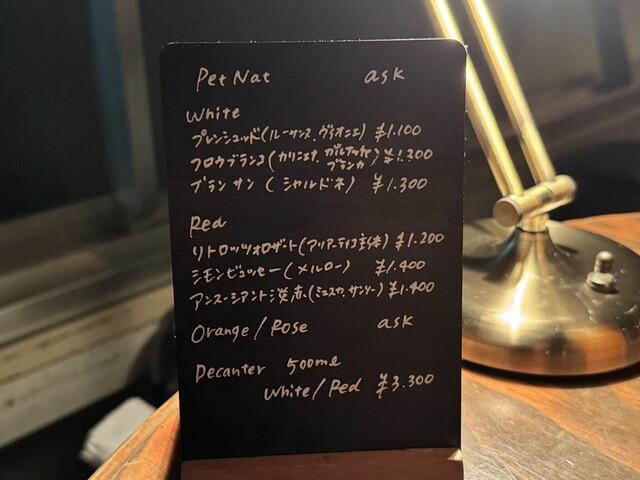 Pet Nat ask
White
プレンシュッド(ルーサンヌ、ヴィオニエ) ¥1.100
フロウブランコ(カリニェナ、ガルナッチャブランカ) ¥1.300
ブラン サン (シャルドネ) ¥1.300
Red
リトロッツォロザート(アリアーティコ主体) ¥1.200
シモンビュッセー(メルロー) ¥1.400
(ミュスカ、サンソー) ¥1.400
Orange/Rose ask
Decanter 500ml
White/Red ¥3.300